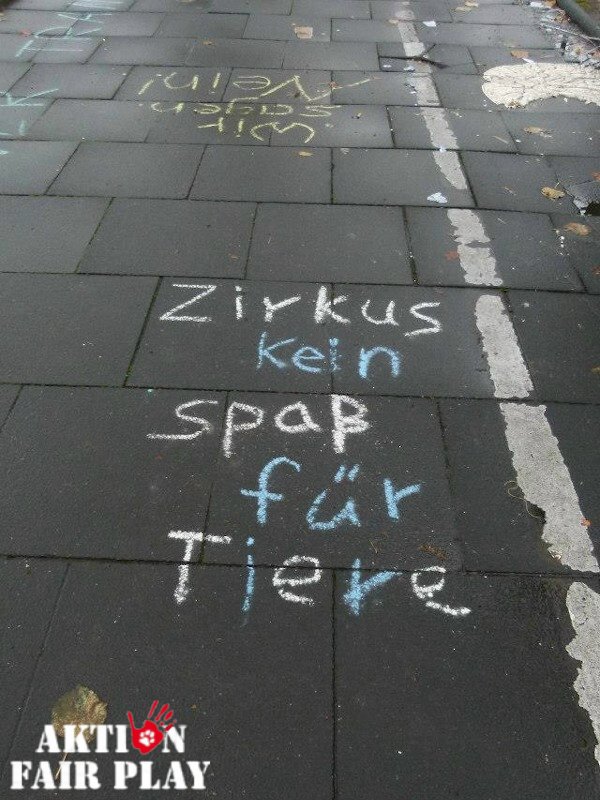 Wir
sagen
Nein!
Zirkus
kein
spaß
für
Tiere
AKTION
FAIR PLAY